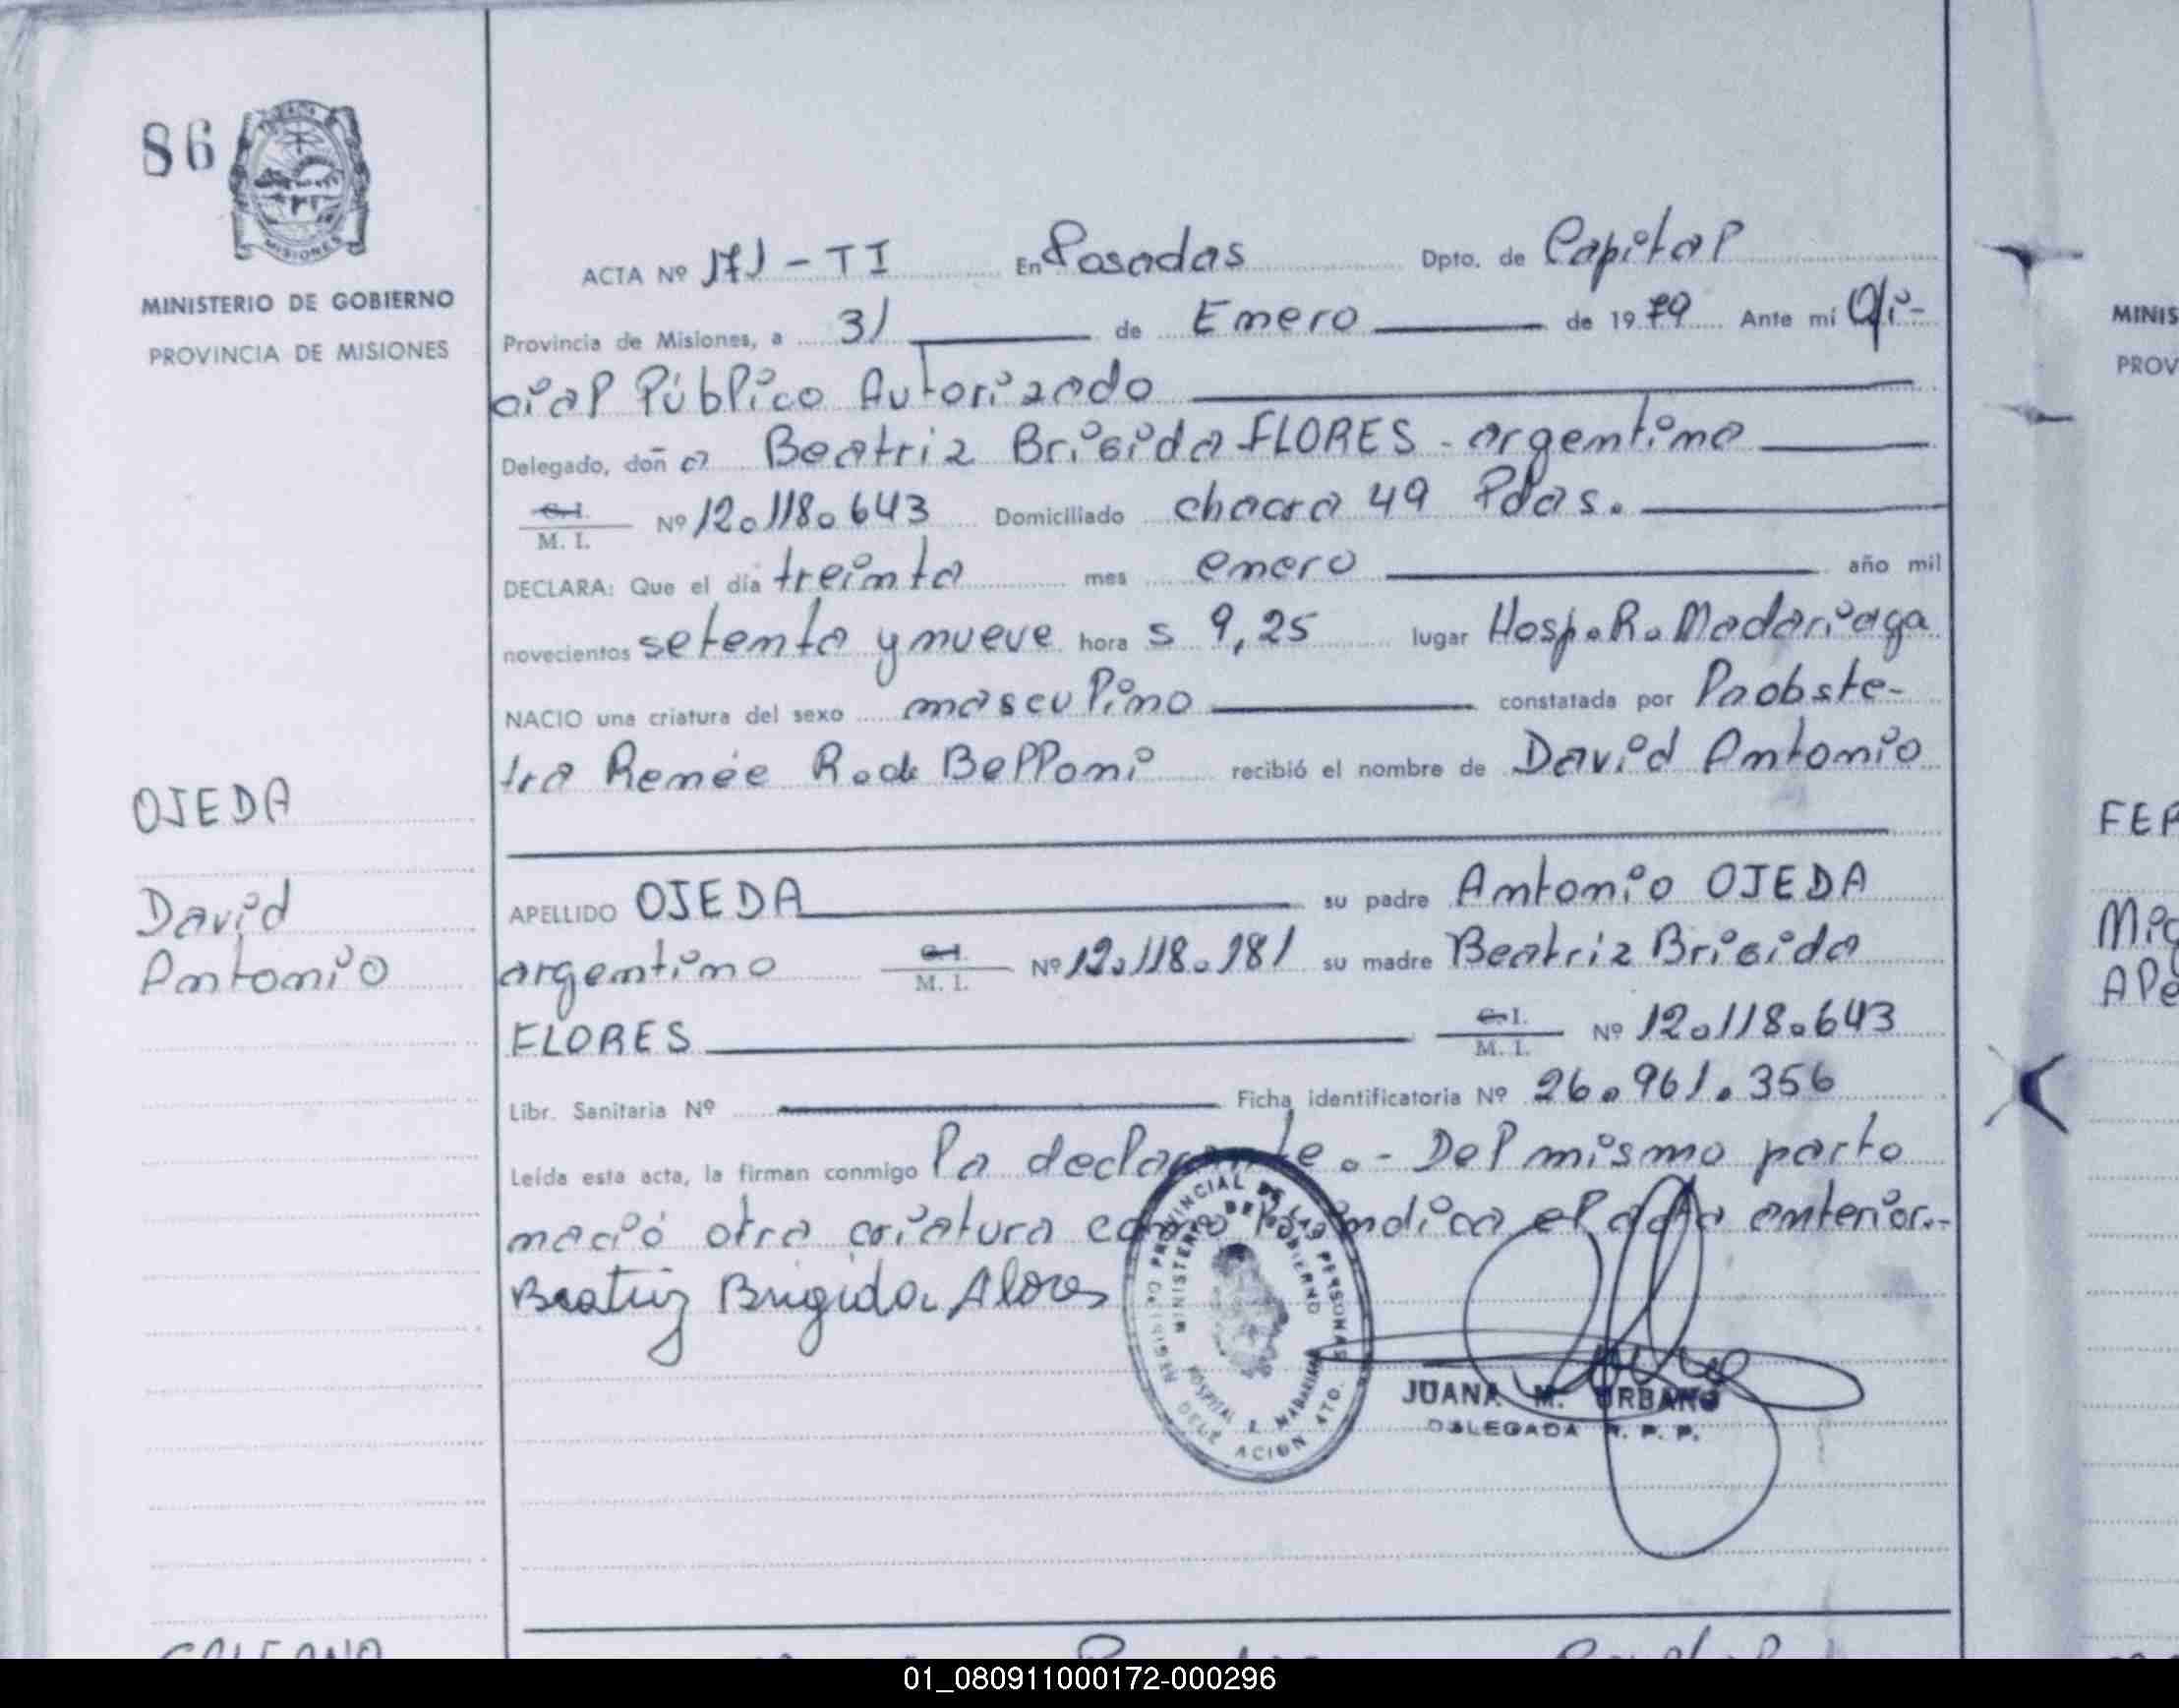 86
MISIONES
MINISTERIO DE GOBIERNO
PROVINCIA DE MISIONES
ACTA Nº 171 - TI En Posadas Dpto. de Capital
Provincia de Misiones, a 31 de Enero de 1979 Ante mí Ofi-
cial Público Autorizado
Delegado, doña Beatriz Brigida FLORES - argentina
C. I. M. I. Nº 12.118.643 Domiciliado chacra 49 Pdas.
DECLARA: Que el día treinta mes enero año mil
novecientos setenta y nueve hora s 9,25 lugar Hosp. R. Madariaga
NACIO una criatura del sexo masculino constatada por la obste-
tra Renée R. de Belloni recibió el nombre de David Antonio
OJEDA
David
Antonio
APELLIDO OJEDA su padre Antonio OJEDA
argentino C. I. M. I. Nº 12.118.181 su madre Beatriz Brigida
FLORES C. I. M. I. Nº 12.118.643
Libr. Sanitaria Nº Ficha identificatoria Nº 26.961.356
Leída esta acta, la firman conmigo la declarante. - Del mismo parto
nació otra criatura como lo indica el acta anterior.-
Beatriz Brigida Flores
REGISTRO PROVINCIAL DE LAS PERSONAS
MINISTERIO DE GOBIERNO
HOSPITAL R. MADARIAGA
DELEGACION
JUANA M. URBANO
DELEGADA R. P. P.
MINIS
PROV
FER
Mig
Ale
GALEANO
01_080911000172-000296